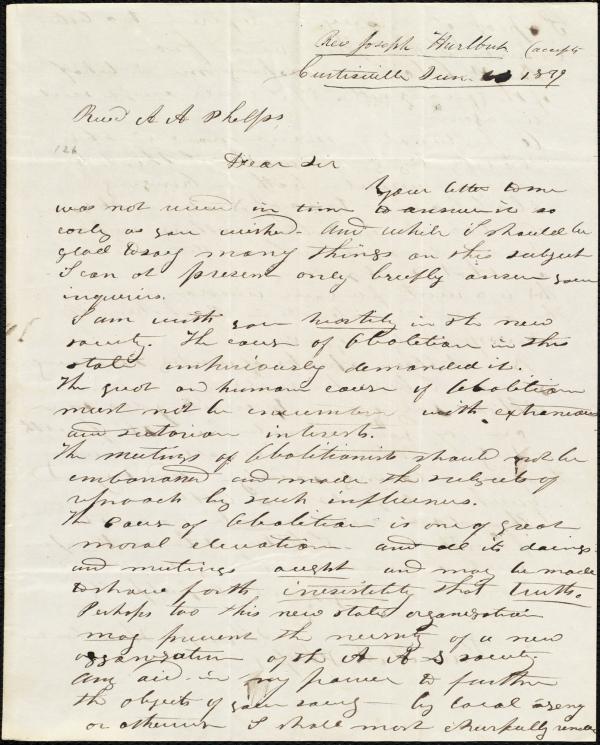 Rev Joseph Hurlbut (accepts
Curtisville June 1839
Revd A A Phelps
126
Dear Sir
Your letter to me
was not received in time to answer it so
early as you wished. And while I should be
glad to say many things on this subject
I can at present only briefly answer your
inquiries.
I am with you heartily in the new
society. The cause of Abolition in this
state imperiously demanded it.
The great and humane cause of Abolition
must not be incumbered with extraneous
and sectarian interests.
The meetings of Abolitionists should not be
embarrassed and made the subjects of
reproach by such influences.
The cause of Abolition is one of great
moral elevation and all its doings
and meetings aught and may be made
to shew forth irresistibly that truth.
Perhaps too this new state organization
may prevent the necessity of a new
organization of the A A S society
Any aid in my power to further
the objects of your society by local agency
or otherwise I shall most cheerfully render